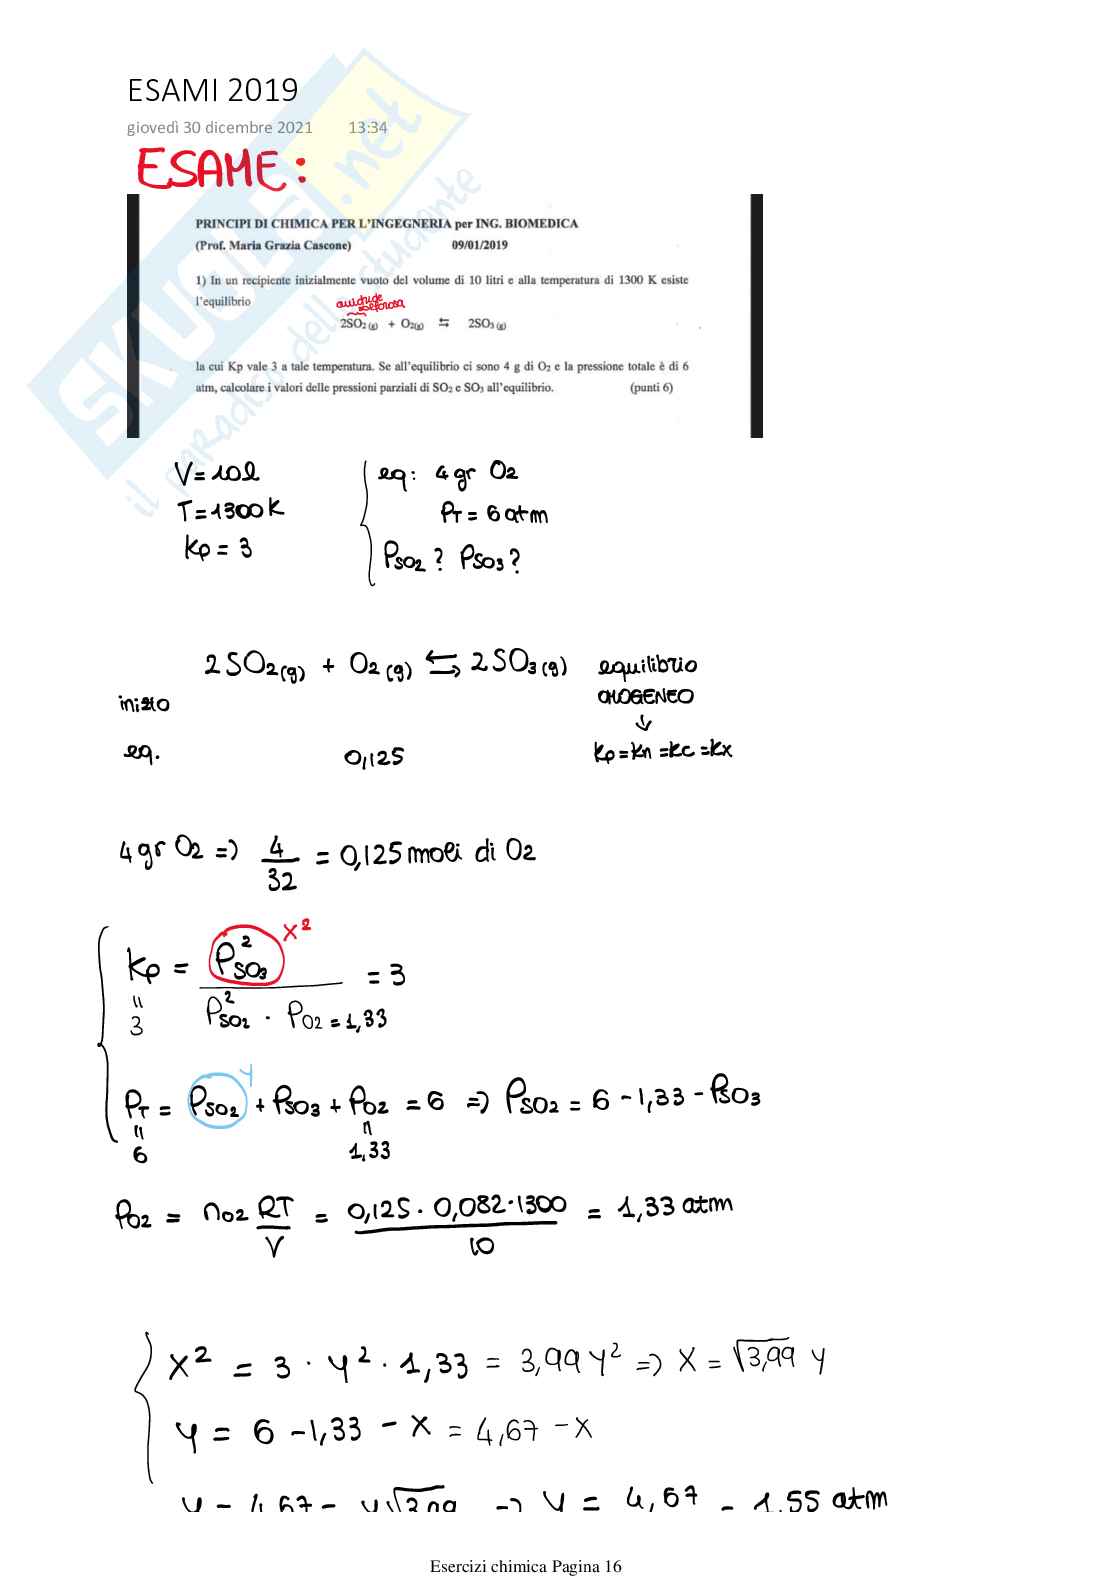 ESAMI 2019
giovedì 30 dicembre 2021 13:34
ESAME:
PRINCIPI DI CHIMICA PER L'INGEGNERIA per ING. BIOMEDICA
(Prof. Maria Grazia Cascone) 09/01/2019
1) In un recipiente inizialmente vuoto del volume di 10 litri e alla temperatura di 1300 K esiste
l'equilibrio
anidride
solforosa
2SO2 (g) + O2(g) ⇆ 2SO3 (g)
la cui Kp vale 3 a tale temperatura. Se all'equilibrio ci sono 4 g di O2 e la pressione totale è di 6
atm, calcolare i valori delle pressioni parziali di SO2 e SO3 all'equilibrio. (punti 6)
V = 10 l eq: 4 gr O2
T = 1300 K PT = 6 atm
Kp = 3 PSO2 ? PSO3 ?
2 SO2(g) + O2 (g) ⇆ 2 SO3 (g) equilibrio
inizio OMOGENEO
↓
eq. 0,125 Kp = Kn = Kc = Kx
4 gr O2 => 4/32 = 0,125 moli di O2
Kp = P²SO3 / P²SO2 · PO2 = 1,33 = 3
x²
"
3
y
PT = PSO2 + PSO3 + PO2 = 6 => PSO2 = 6 - 1,33 - PSO3
" "
6 1,33
PO2 = nO2 RT/V = 0,125 · 0,082 · 1300 / 10 = 1,33 atm
x² = 3 · y² · 1,33 = 3,99 y² => x = √3,99 y
y = 6 - 1,33 - x = 4,67 - x
y = 4,67 - y√3,99 -> y = 4,67 - 1,55 atm
Esercizi chimica Pagina 16
SKUOLA.net
il paradiso dello studente